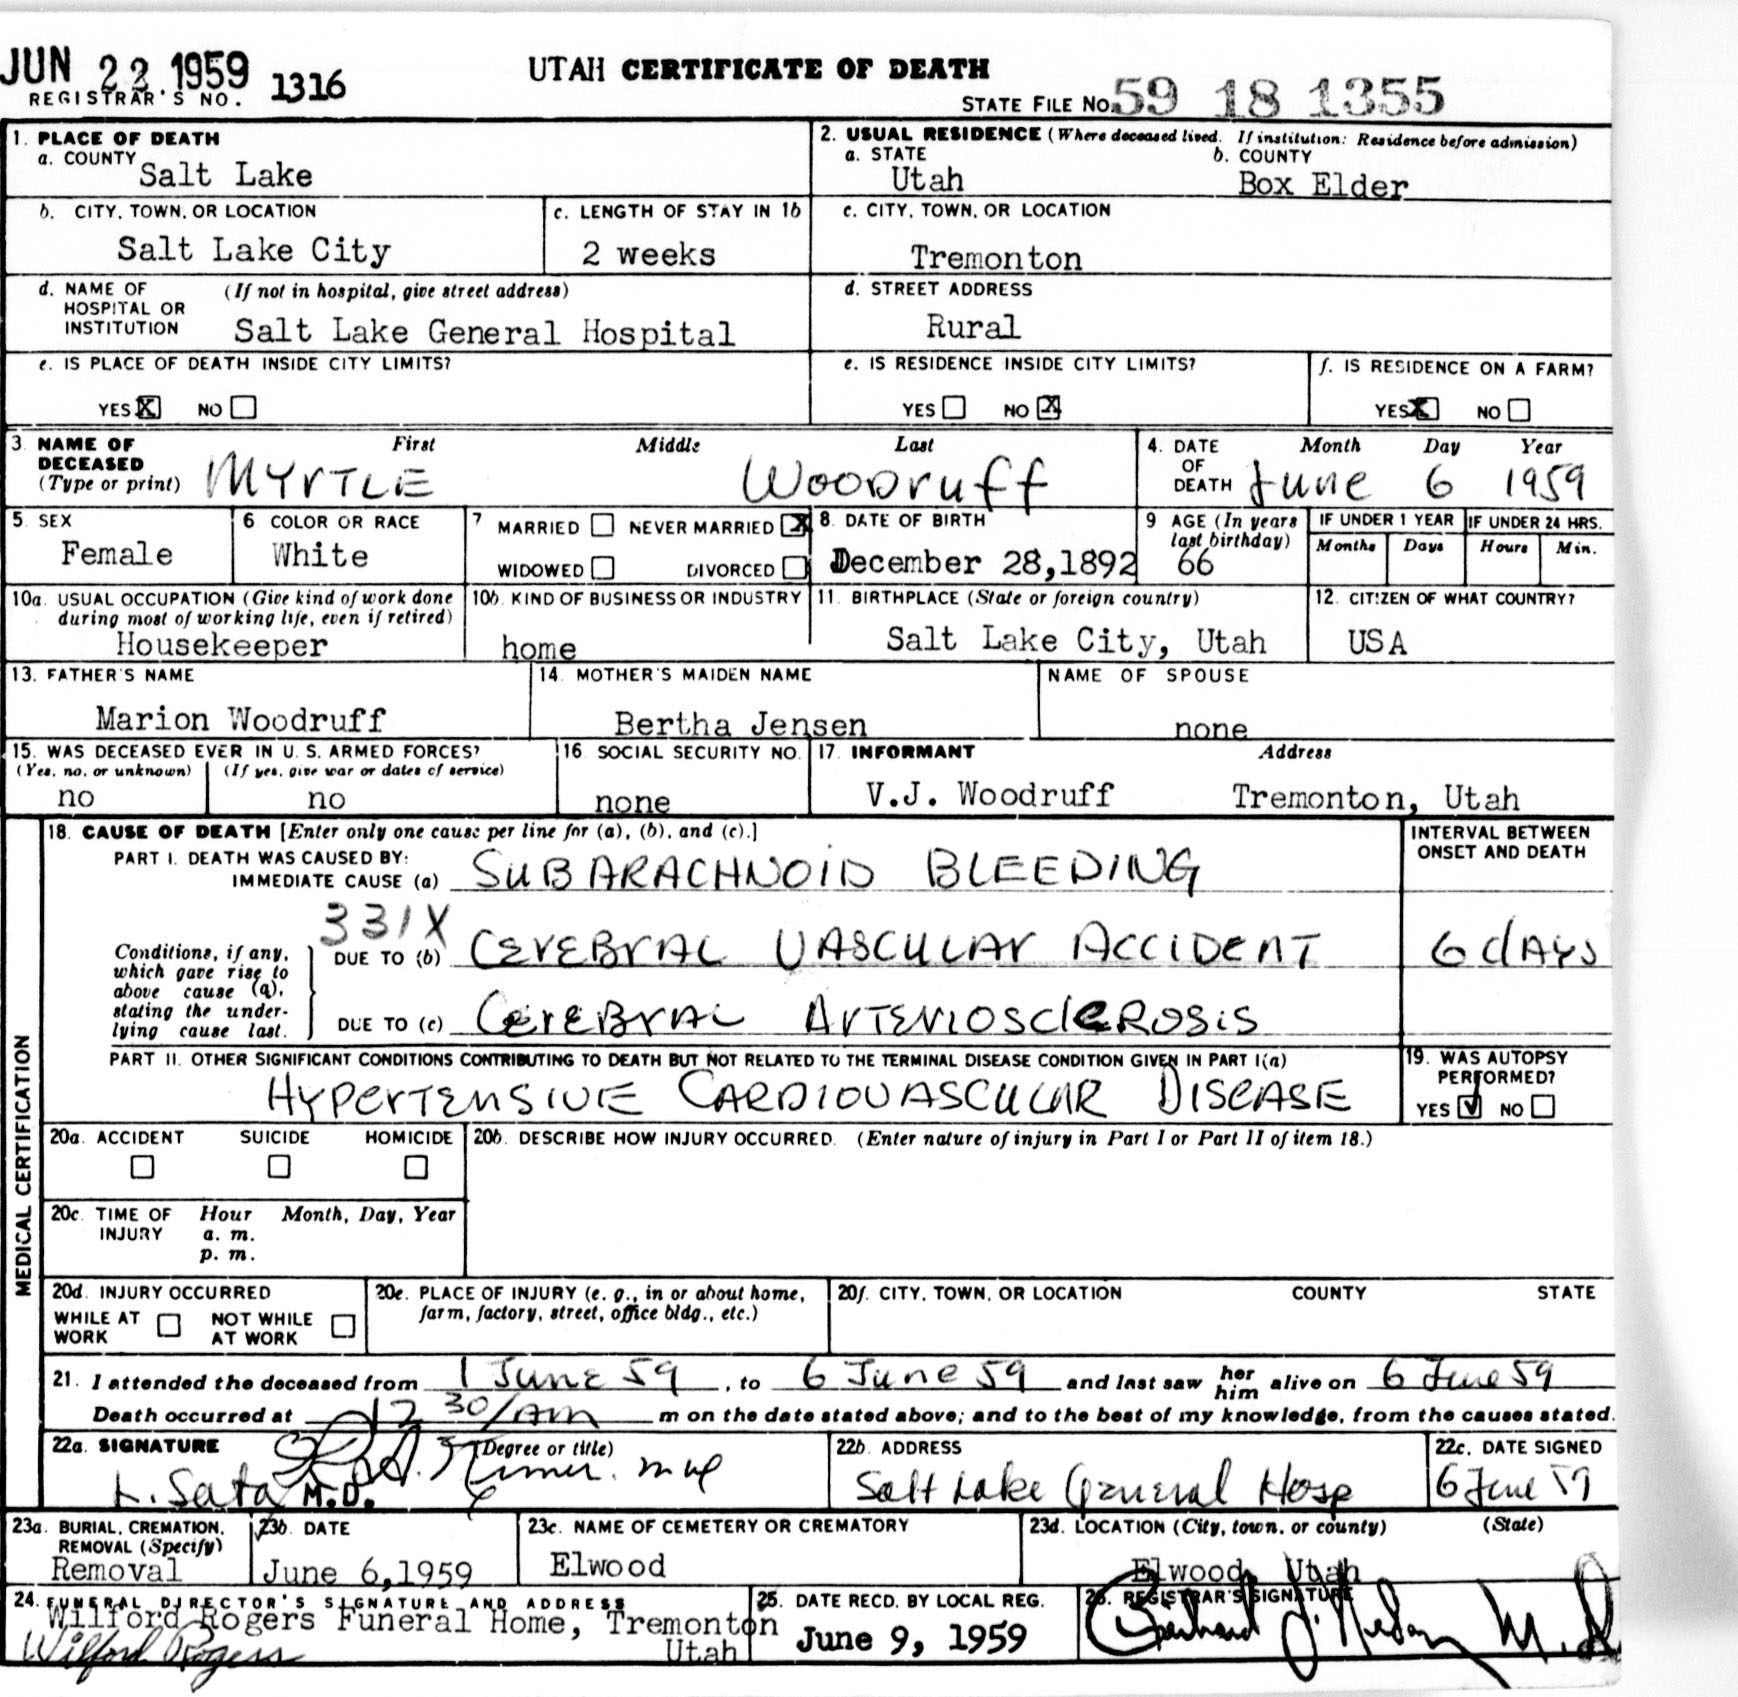 JUN 22 1959 1316 UTAH CERTIFICATE OF DEATH
REGISTRAR'S NO. STATE FILE NO. 59 18 1355
1. PLACE OF DEATH
a. COUNTY Salt Lake
2. USUAL RESIDENCE (Where deceased lived. If institution: Residence before admission)
a. STATE Utah b. COUNTY Box Elder
b. CITY, TOWN, OR LOCATION Salt Lake City
c. LENGTH OF STAY IN 1b 2 weeks
c. CITY, TOWN, OR LOCATION Tremonton
d. NAME OF HOSPITAL OR INSTITUTION (If not in hospital, give street address)
Salt Lake General Hospital
d. STREET ADDRESS
Rural
e. IS PLACE OF DEATH INSIDE CITY LIMITS?
YES X NO
e. IS RESIDENCE INSIDE CITY LIMITS?
YES NO X
f. IS RESIDENCE ON A FARM?
YES X NO
3. NAME OF DECEASED (Type or print) First Middle Last
MYrTLE WOODruff
4. DATE OF DEATH Month Day Year
June 6 1959
5. SEX Female
6 COLOR OR RACE White
7 MARRIED NEVER MARRIED X
WIDOWED DIVORCED
8. DATE OF BIRTH December 28,1892
9 AGE (In years last birthday) 66
IF UNDER 1 YEAR Months Days
IF UNDER 24 HRS. Hours Min.
10a. USUAL OCCUPATION (Give kind of work done during most of working life, even if retired)
Housekeeper
10b. KIND OF BUSINESS OR INDUSTRY
home
11. BIRTHPLACE (State or foreign country)
Salt Lake City, Utah
12. CITIZEN OF WHAT COUNTRY?
USA
13. FATHER'S NAME
Marion Woodruff
14. MOTHER'S MAIDEN NAME
Bertha Jensen
NAME OF SPOUSE
none
15. WAS DECEASED EVER IN U. S. ARMED FORCES?
(Yes, no, or unknown) (If yes, give war or dates of service)
no no
16 SOCIAL SECURITY NO.
none
17. INFORMANT Address
V.J. Woodruff Tremonton, Utah
MEDICAL CERTIFICATION
18. CAUSE OF DEATH [Enter only one cause per line for (a), (b), and (c).]
INTERVAL BETWEEN ONSET AND DEATH
PART I. DEATH WAS CAUSED BY:
IMMEDIATE CAUSE (a) SUBARACHNOID BLEEDING
331X
Conditions, if any, which gave rise to above cause (a), stating the underlying cause last.
DUE TO (b) CEREBRAL VASCULAR ACCIDENT 6 dAYS
DUE TO (c) CEREBRAL ARTERIOSCLEROSIS
PART II. OTHER SIGNIFICANT CONDITIONS CONTRIBUTING TO DEATH BUT NOT RELATED TO THE TERMINAL DISEASE CONDITION GIVEN IN PART I(a)
HYPERTENSIVE CARDIOVASCULAR DISEASE
19. WAS AUTOPSY PERFORMED?
YES ✓ NO
20a. ACCIDENT SUICIDE HOMICIDE
20b. DESCRIBE HOW INJURY OCCURRED. (Enter nature of injury in Part I or Part II of item 18.)
20c. TIME OF INJURY Hour Month, Day, Year
a. m.
p. m.
20d. INJURY OCCURRED
WHILE AT WORK NOT WHILE AT WORK
20e. PLACE OF INJURY (e. g., in or about home, farm, factory, street, office bldg., etc.)
20f. CITY, TOWN, OR LOCATION COUNTY STATE
21. I attended the deceased from 1 June 59, to 6 June 59 and last saw her him alive on 6 June 59
Death occurred at 12 30/AM m on the date stated above; and to the best of my knowledge, from the causes stated.
22a. SIGNATURE (Degree or title)
L. Sata M.D.
22b. ADDRESS
Salt Lake General Hosp
22c. DATE SIGNED
6 June 59
23a. BURIAL, CREMATION, REMOVAL (Specify)
Removal
23b. DATE
June 6,1959
23c. NAME OF CEMETERY OR CREMATORY
Elwood
23d. LOCATION (City, town, or county) (State)
Elwood, Utah
24. FUNERAL DIRECTOR'S SIGNATURE AND ADDRESS
Wilford Rogers Funeral Home, Tremonton
Utah
Wilford Rogers
25. DATE RECD. BY LOCAL REG.
June 9, 1959
26. REGISTRAR'S SIGNATURE
M.D.